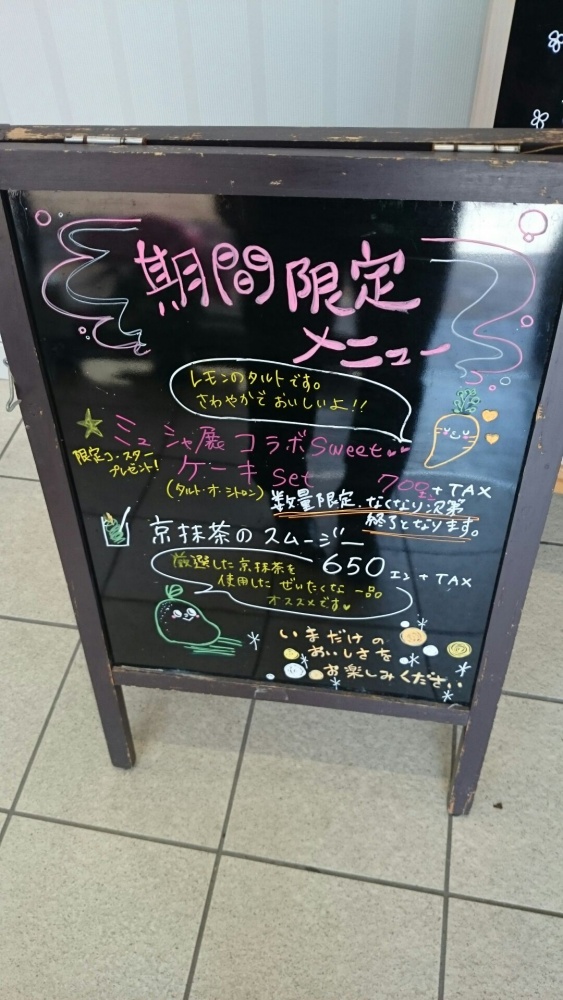 期間限定
メニュー
レモンのタルトです。
さわやかでおいしいよ!!
ミュシャ展コラボSweet
限定コースター
プレゼント!
ケーキ set
(タルト・オ・シトロン)
700エン+TAX
数量限定、なくなり次第
終了となります。
京抹茶のスムージー
650エン+TAX
厳選した京抹茶を
使用したぜいたくな一品
オススメです
いまだけの
おいしさを
お楽しみください